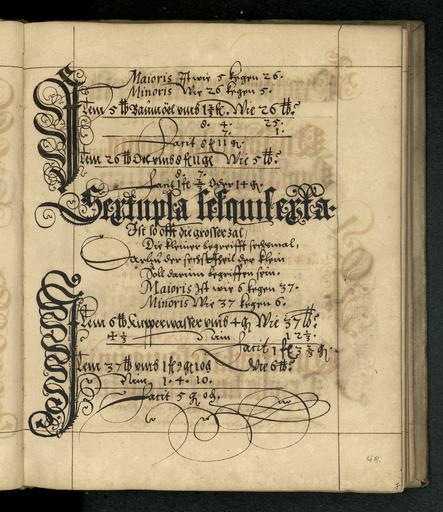 Maioris Ist wie 5 kegen 26.
Minoris Wie 26 kegen 5.
Item 5 ℔ Baumöel umb 1 fl. Wie 26 ℔?
8. 4. 25.
7. 1.
Facit 8 fl 11 gℓ.
Item 26 ℔ umb 8 fl 11 gℓ Wie 5 ℔?
8. 7.
Facit 1 fl Oder 14 gℓ.
Sextupla sesquisexta.
Ist so offt die grosser zal,
Die kleiner begreifft sechsmal,
Darzu der sechste theil der klein
Soll darinn begriffen sein.
Maioris Ist wie 6 kegen 37.
Minoris Wie 37 kegen 6.
Item 6 ℔ Kupperwasser umb 4 gℓ Wie 37 ℔?
Facit 1 fl 3 gℓ.
Item 37 ℔ umb 1 fl Wie 6 ℔?
Nim 1. 4. 10.
Facit 5 gℓ
48.